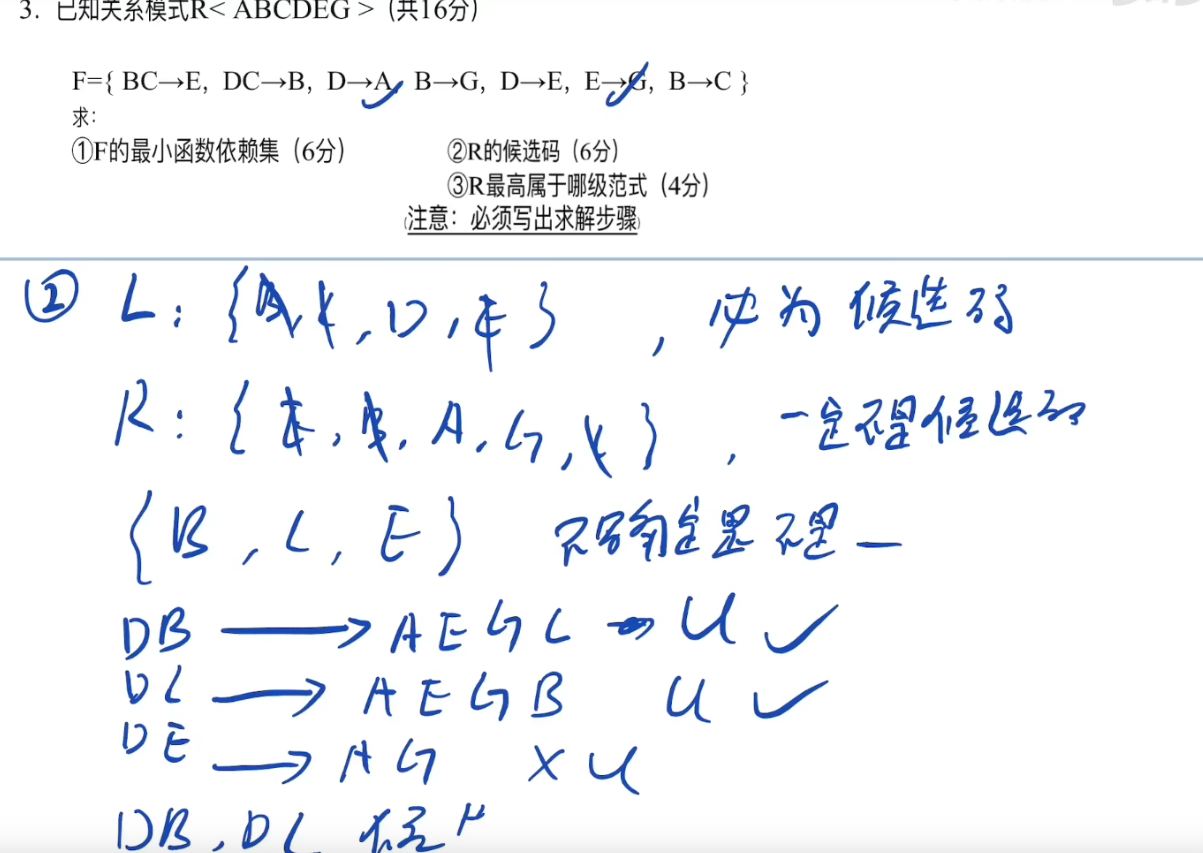 3. 已知关系模式R< ABCDEG >（共16分）
F={ BC→E, DC→B, D→A, B→G, D→E, E→G, B→C }
求：
①F的最小函数依赖集（6分） ②R的候选码（6分）
③R最高属于哪级范式（4分）
注意：必须写出求解步骤
② L: { B, C, D, E } , 必为候选码
R: { E, B, A, G, C } , 一定不是候选码
{ B, C, E } 不确定是不是
DB → AEGC → U ✓
DC → AEGB U ✓
DE → AG × U
DB, DC 候